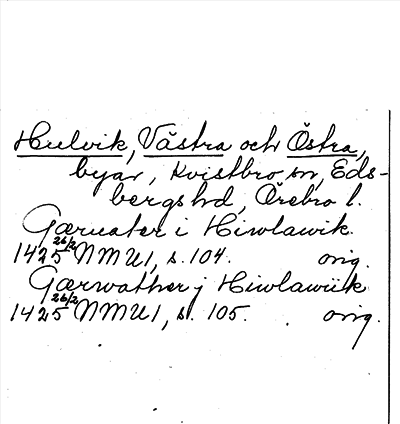 Hulvik, Västra och Östra,
byar, Kvistbro sn, Eds-
bergs hd, Örebro l.
Gæruater i Hiwlawik.
1425 26/2 NMU1, s. 104. orig.
Gærwather j Hiwlawiik
1425 26/2 NMU1, s. 105. orig.